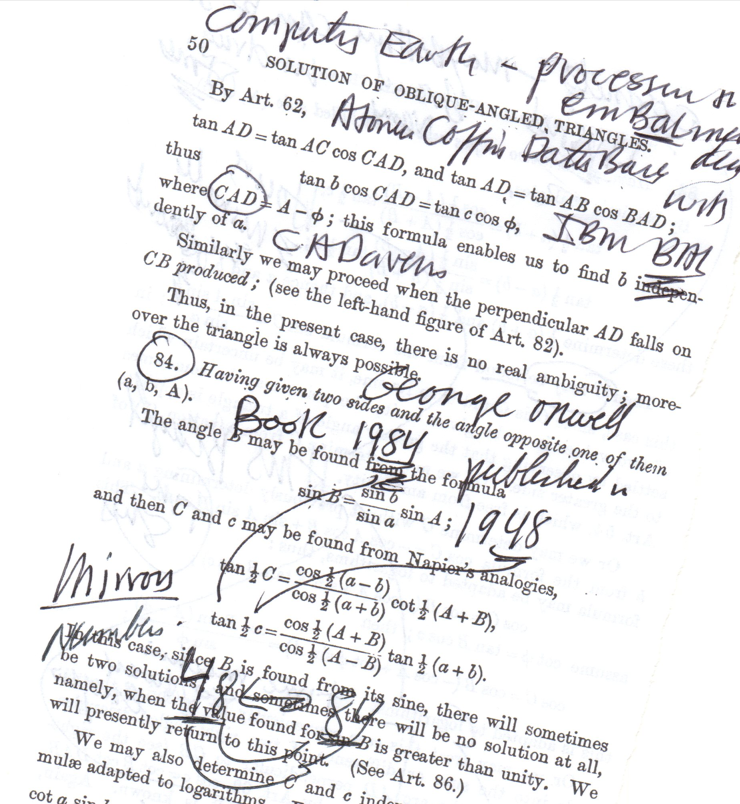 Computer Earth - processing
50
SOLUTION OF OBLIQUE-ANGLED TRIANGLES.
emBalmed
By Art. 62,
Atomic Coffin DataBase
tan AD = tan AC cos CAD, and tan AD = tan AB cos BAD;
thus
with
tan b cos CAD = tan c cos ϕ,
IBM BAL
where CAD = A − ϕ; this formula enables us to find b indepen-
dently of a.
CADavers
Similarly we may proceed when the perpendicular AD falls on
CB produced; (see the left-hand figure of Art. 82).
Thus, in the present case, there is no real ambiguity; more-
over the triangle is always possible.
George Orwell
84. Having given two sides and the angle opposite one of them
(a, b, A).
Book 1984 published in
The angle B may be found from the formula
sin B = sin b / sin a sin A;
1948
and then C and c may be found from Napier's analogies,
Mirror
tan ½ C = cos ½ (a − b) / cos ½ (a + b) cot ½ (A + B),
tan ½ c = cos ½ (A + B) / cos ½ (A − B) tan ½ (a + b).
Numbers
In this case, since B is found from its sine, there will sometimes
be two solutions, and sometimes there will be no solution at all,
48 84
namely, when the value found for sin B is greater than unity. We
will presently return to this point. (See Art. 86.)
We may also determine C and c indep
mulæ adapted to logarithms.
cot a sin b